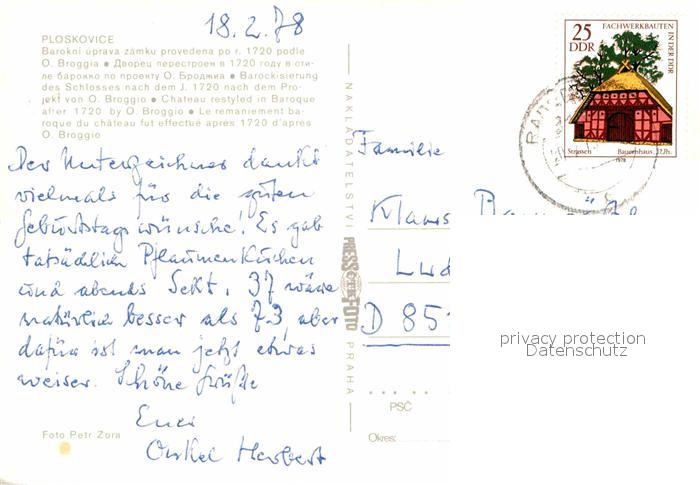 18.2.78
PLOSKOVICE
Barokní úprava zámku provedena po r. 1720 podle
O. Broggia • Дворец перестроен в 1720 году в сти-
ле барокко по проекту О. Броджиа • Barockisierung
des Schlosses nach dem J. 1720 nach dem Pro-
jekt von O. Broggio • Chateau restyled in Baroque
after 1720 by O. Broggio • Le remaniement ba-
roque du château fut effectué après 1720 d'après
O. Broggio
Der Unterzeichner dankt
vielmals für die guten
Geburtstagswünsche! Es gab
tatsächlich Pflaumenkuchen
und abends Sekt. 37 wäre
natürlich besser als 73, aber
dafür ist man jetzt etwas
weiser. Schöne Grüße
Euer
Onkel Herbert
Foto Petr Zora
NAKLADATELSTVÍ
PRESSFOTO
PRAHA
25
DDR
FACHWERKBAUTEN
IN DER DDR
Strassen Bauernhaus 17.Jh.
1978
Familie
Klaus
Lud
D 851
privacy protection
Datenschutz
PSČ
Okres: